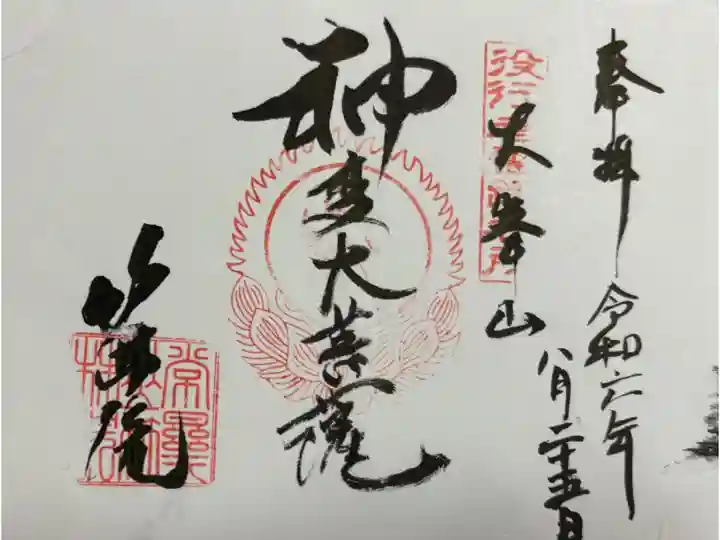 奉拝 令和六年
八月二十五日
役行者霊蹟札所
大峯山
神変大菩薩
竹林院